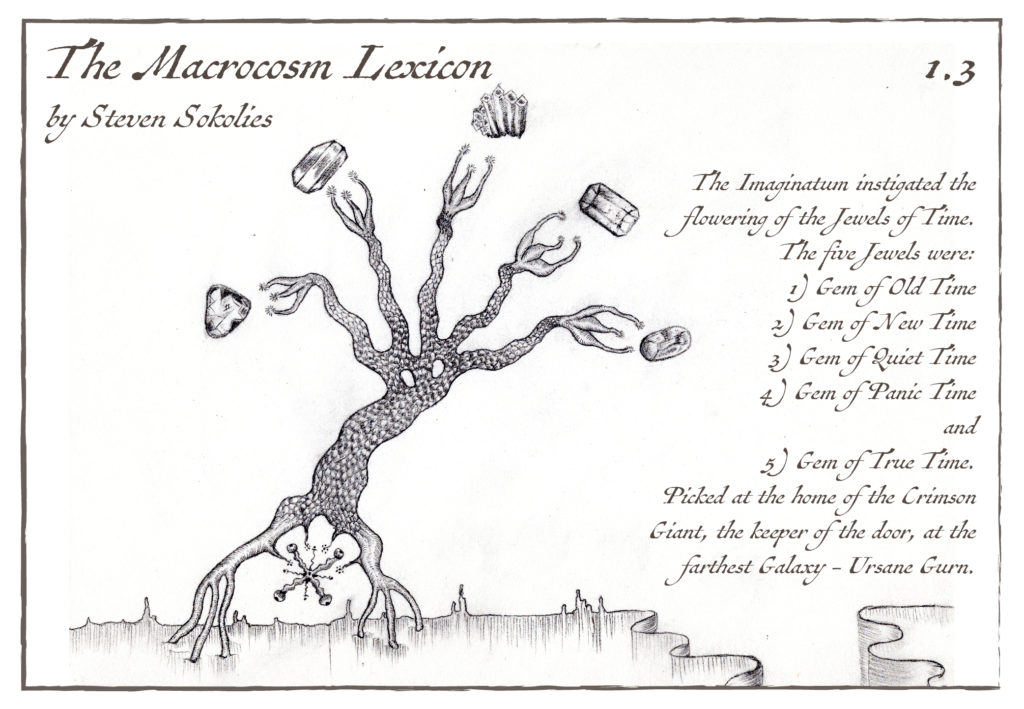 The Macrocosm Lexicon
1.3
by Steven Sokolies
The Imaginatum instigated the
flowering of the Jewels of Time.
The five Jewels were:
1) Gem of Old Time
2) Gem of New Time
3) Gem of Quiet Time
4) Gem of Panic Time
and
5) Gem of True Time.
Picked at the home of the Crimson
Giant, the keeper of the door, at the
farthest Galaxy - Ursane Gurn.